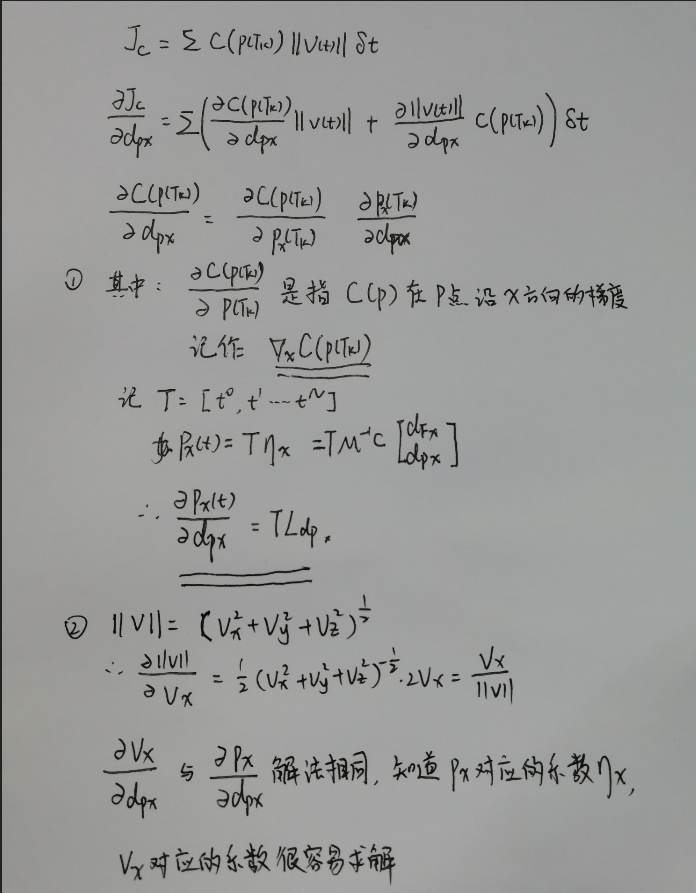 J_c = Σ C(p(T_k)) ||v(t)|| δt
∂J_c/∂d_px = Σ(∂C(p(T_k))/∂d_px ||v(t)|| + ∂||v(t)||/∂d_px C(p(T_k))) δt
∂C(p(T_k))/∂d_px = ∂C(p(T_k))/∂p_x(T_k) ∂p_x(T_k)/∂d_px
① 其中: ∂C(p(T_k))/∂p(T_k) 是指 C(p) 在 p点 沿 x方向的梯度
记作 ∇_x C(p(T_k))
记 T = [t⁰, t¹ ---- t^N]
P_x(t) = Tη_x = TM⁻¹C [d_Fx d_px]
∴ ∂P_x(t)/∂d_px = TL_dp.
② ||V|| = (V_x² + V_y² + V_z²)^½
∴ ∂||v||/∂V_x = ½ (V_x² + V_y² + V_z²)^-½ · 2V_x = V_x/||v||
∂V_x/∂d_px 与 ∂P_x/∂d_px 解法相同, 知道 p_x 对应的系数 η_x,
V_x 对应的系数很容易求解